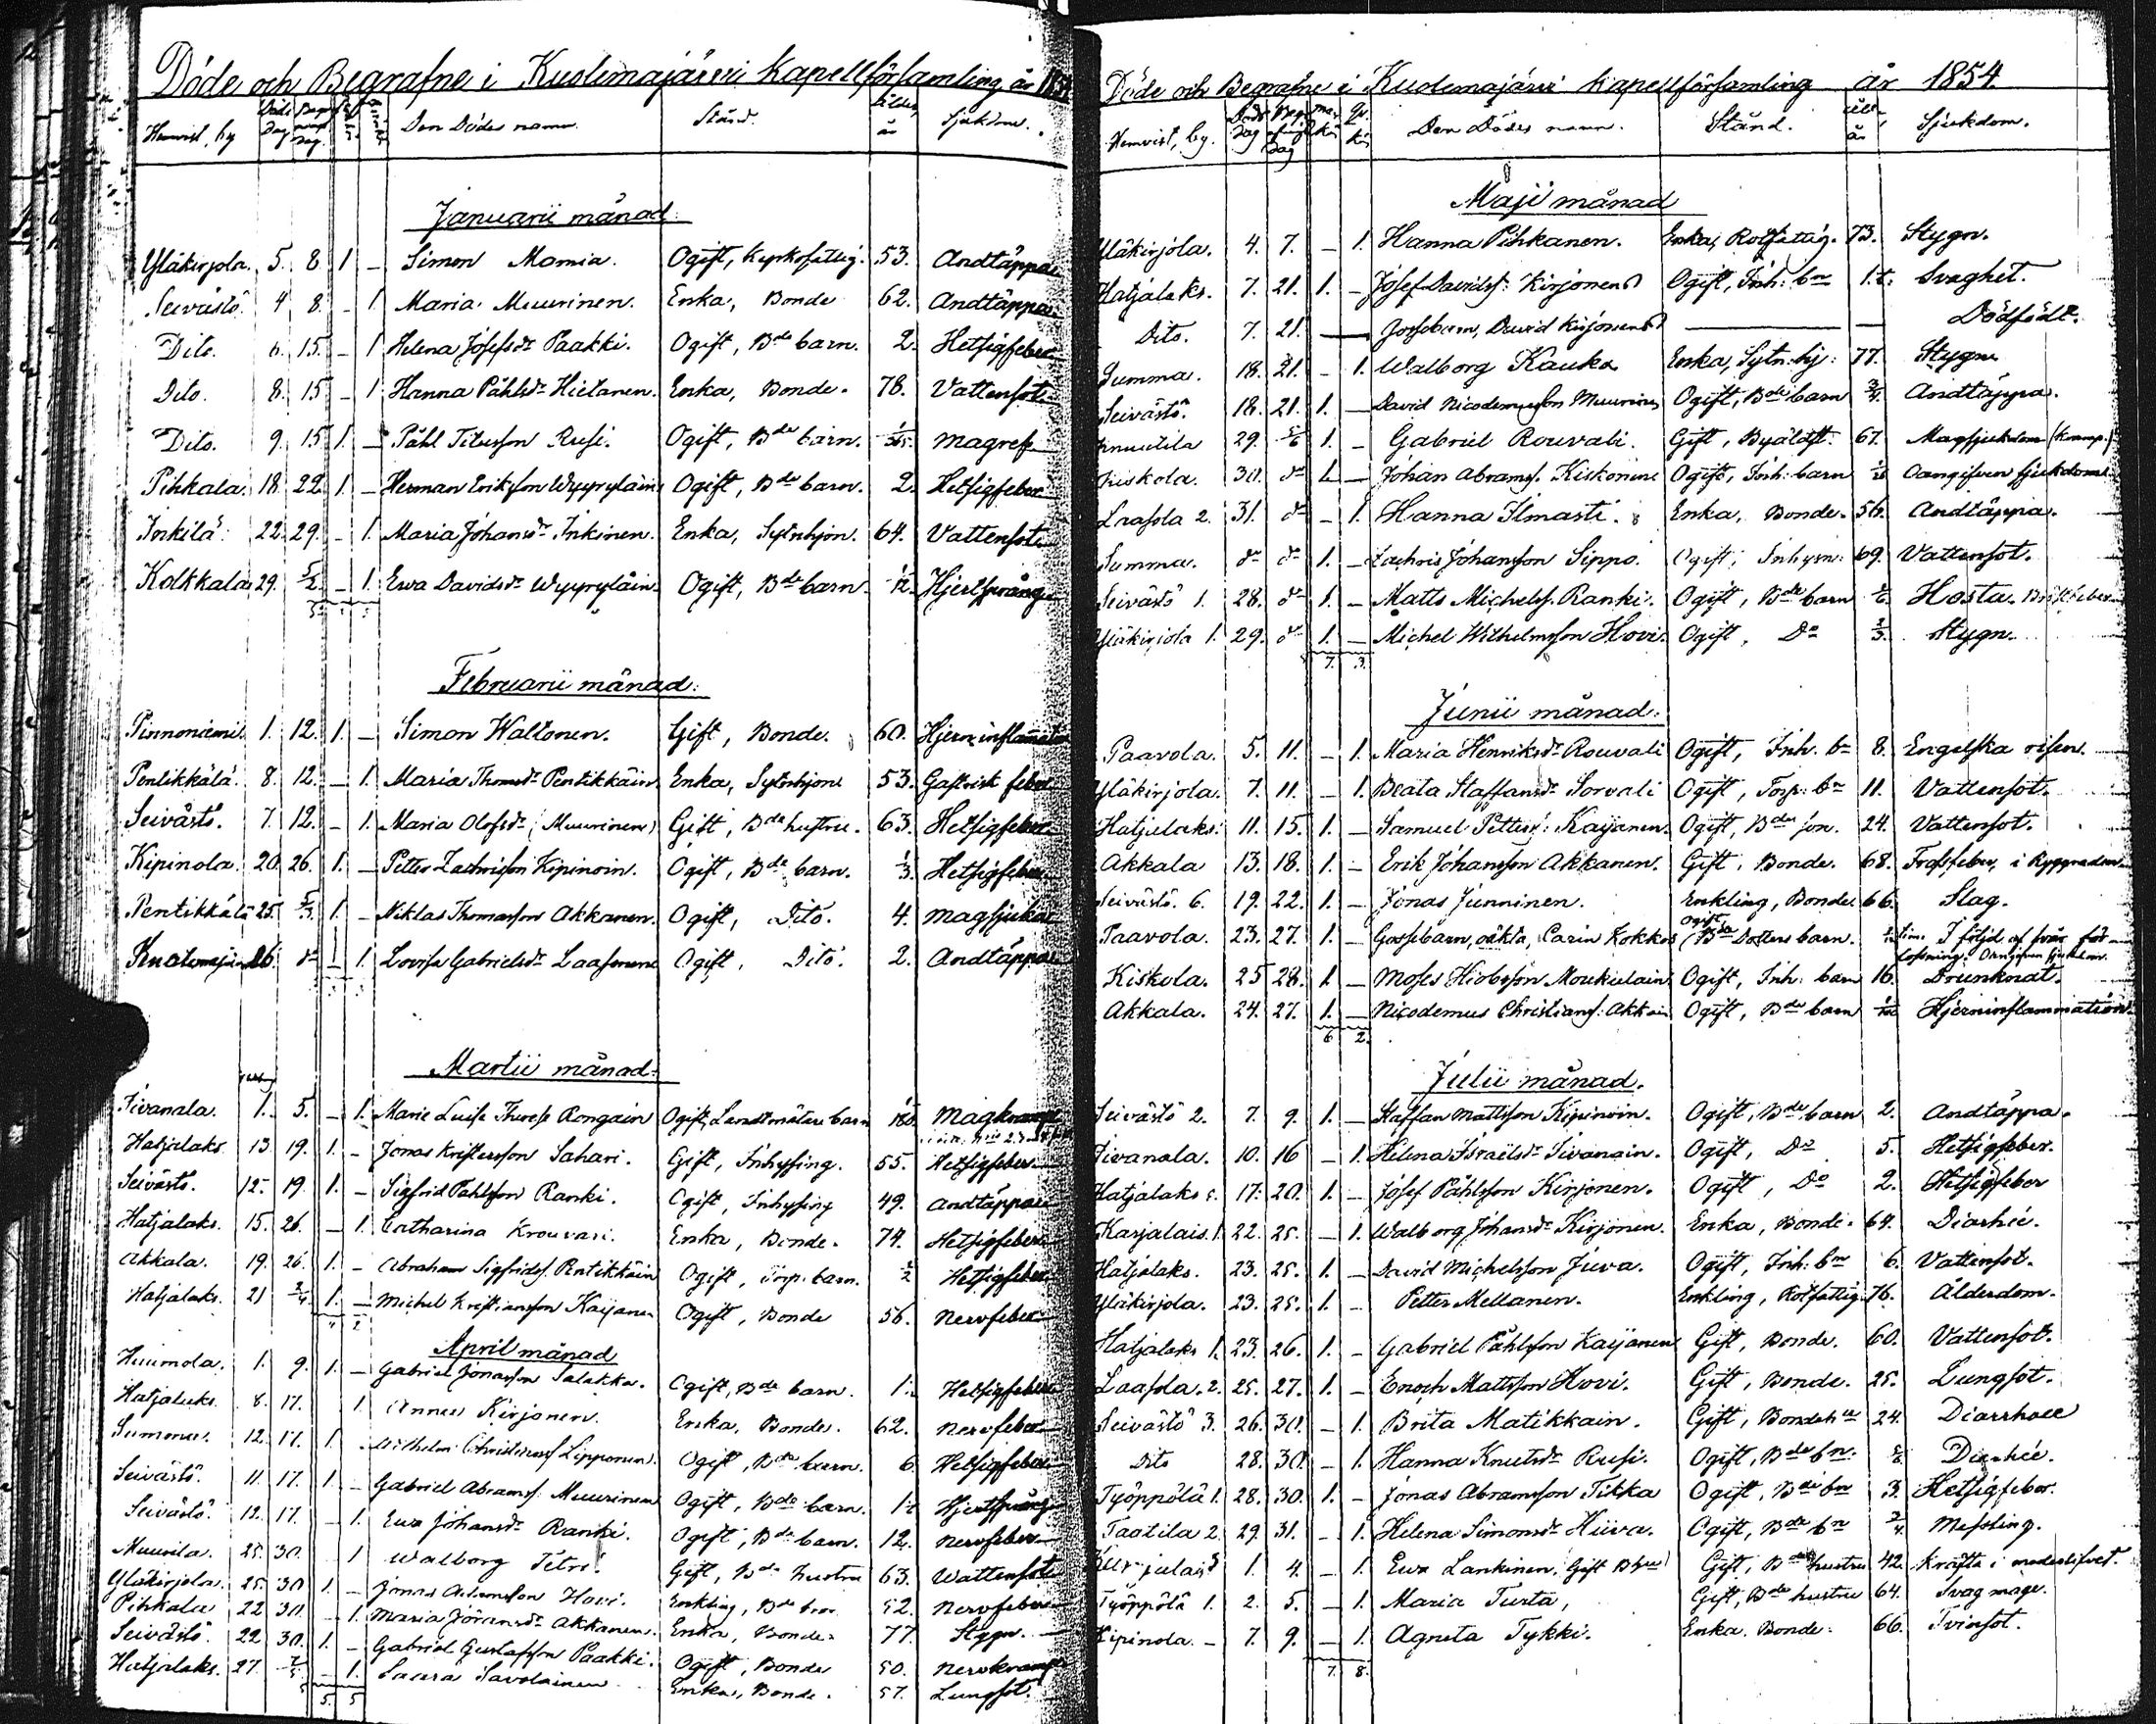 Döde och Begrafne i Kuolemajärvi Kapellförsamling år 1854
Hemvist, by Döds dag Begrafnings dag Den Dödes namn. Stånd. Ålder, år Sjukdom.
Januarii månad.
Yläkirjola. 5. 8. 1 – Simon Mamia. Ogift, Kyrkofattig. 53. Andtäppa
Seivästö. 4 8. – 1 Maria Muurinen. Enka, Bonde 62. Andtäppa
Dito. 6. 15. – 1 Helena Josefsdr Paakki. Ogift, Bde barn. 2. Hetsigfeber
Dito. 8. 15 – 1 Hanna Påhlsdr Hietanen. Enka, Bonde. 78. Vattensot
Dito. 9. 15 1. – Påhl Titusson Rusi. Ogift, Bde barn. magref
Pihkala. 18. 22. 1. – Herman Eriksson Wyyryläin Ogift, Bde barn. 2. Hetsigfeber
Inkilä. 22. 29. – 1. Maria Johansdr Inkinen. Enka, Sytnhjon. 64. Vattensot
Kolkkala 29. 5/2. – 1. Ewa Davidsdr Wyyryläin. Ogift, Bde barn. 1/12. Hjertsprång
Februarii månad.
Pinnoniemi. 1. 12. 1. – Simon Waltonen. Gift, Bonde. 60. Hjerninflammation
Pentikkälä. 8. 12. – 1. Maria Thomsdr Pentikkäin Enka, Sytnhjon 53. Gastrisk feber
Seivästö. 7. 12. – 1. Maria Olofsdr Muurinen Gift, Bde hustru. 63. Hetsigfeber
Kipinola. 20. 26. 1. – Petter Zachrisson Kipinoin. Ogift, Bde barn. 1/3. Hetsigfeber
Pentikkälä 25. 5/3. 1. – Niklas Thomasson Akkanen. Ogift, Dito. 4. magsjuka
26. do 1. Lovisa Gabrielsdr Laasonen Ogift, Dito. 2. Andtäppa
Martii månad.
Iivanala. 1. 5. – 1. Marie Luise Therese Rongain Ogift, Landtmätare barn Magkramp
Hatjalaks 13. 19. 1. – Jonas Kristersson Sahari. Gift, Inhysing. 55. Hetsigfeber
Seivästö. 12. 19. 1. – Sigfrid Påhlsson Ranki. Ogift, Inhysing 49. Andtäppa
Hatjalaks. 15. 26. – 1. Catharina Krouvari. Enka, Bonde. 74. Hetsigfeber
Akkala. 19. 26. 1. – Abraham Sigfridss. Pentikkäin Ogift, Torp. barn. 1/2 Hetsigfeber
Hatjalaks. 21 2/4 1. – Michel Kristiansson Kaijanen Ogift, Bonde 56. Nervfeber
April månad
Huumola. 1. 9. 1. – Gabriel Jonasson Salakka. Ogift, Bde barn. 1. Hetsigfeber
Hatjalaks. 8. 17. 1. Anna Kirjonen. Enka, Bonde. 62. Nervfeber
12. 17. 1. Wilhelm Christianss Lipponen. Ogift, Bde barn. 6. Hetsigfeber
Seivästö. 11. 17. 1. – Gabriel Abramss. Muurinen Ogift, Bde barn. Hjertsprång
Seivästö. 12. 17. – 1. Ewa Johansdr Ranki. Ogift, Bde barn. 12. Nervfeber
Muurila. 25. 30. 1 Walborg Tetri. Gift, Bde hustru 63. Wattensot
Yläkirjola. 25. 30 1. – Jonas Adamsson Hovi. Enkling, Bde 52. Nervfeber
Pihkala 22 30. – 1. Maria Göransdr Akkanen. Enka, Bonde. 77. Stygn.
Seivästö. 22 30. 1. – Gabriel Gustafsson Paakki. Ogift, Bonde 50. Nervkramp
Hatjalaks. 27. 7/5 – 1. Saara Savolainen Enka, Bonde. 57. Lungsot.
5. 5
Döde och Begrafne i Kuolemajärvi Kapellförsamling år 1854.
Hemvist, by. Döds dag Begrafnings dag Den Dödes namn. Stånd. Ålder, år Sjukdom.
Maji månad
Yläkirjola. 4. 7. – 1. Hanna Pihkanen. Enka, Rotfattig. 73. Stygn.
Hatjalaks. 7. 21. 1. – Josef Davidss. Kirjonen Ogift, Inh. bn 1 t. Svaghet.
Dito. 7. 21. — Gossebarn, David Kirjonens — Dödfödt.
Summa. 18. 21. – 1. Walborg Kauko Enka, Sytn. hj. 77. Stygn
Seivästö. 18. 21. 1. – David Nicodemusson Muurinen Ogift, Bde barn 3/4. Andtäppa.
29. 5/6 1. – Gabriel Rouvali. Gift, Byäldst. 67. Magsjukdom (kramp.)
Kiskola. 30. do 1. – Johan Abramss. Kiskonen Ogift, Inh. barn Oangifven sjukdom
Laasola 2. 31. do – 1. Hanna Ilmasti. Enka, Bonde. 56. Andtäppa.
Summa. do do 1. – Zachris Johansson Sippo. Ogift, Inhysn. 69. Vattensot.
Seivästö 1. 28. do 1. – Matts Michelss. Ranki. Ogift, Bde barn Hosta. Bröstfeber
Yläkirjola 1. 29. do 1. – Michel Wilhelmsson Hovi. Ogift, Do 2/3. Stygn.
7. 3.
Junii månad.
Paavola. 5. 11. – 1. Maria Henriksdr Rouvali Ogift, Inh. bn 8. Engelska risen.
Yläkirjola. 7. 11. – 1. Beata Staffansdr Sorvali Ogift, Torp. bn 11. Vattensot.
Hatjalaks. 11. 15. 1. – Samuel Petterss. Kaijanen. Ogift, Bde son. 24. Vattensot.
Akkala 13. 18. 1. – Erik Johansson Akkanen. Gift, Bonde. 68. Frossfeber, i Ryggraden
Seivästö. 6. 19. 22. 1. – Jonas Junninen. Enkling, Bonde. 66. Slag.
Paavola. 23. 27. 1. – Gossebarn, oäkta, Carin Kokkos ogift Bde Dotters barn. tim. I följd af svår förlossning. Oangifven sjukdom.
Kiskola. 25 28. 1 – Moses Hiobsson Moukulain Ogift, Inh. barn 16. Drunknat.
Akkala. 24. 27. 1. – Nicodemus Christianss. Akkain Ogift, Bde barn Hjerninflammation.
6 2.
Julii månad.
Seivästö 2. 7. 9. 1. – Staffan Mattsson Kipinoin. Ogift, Bde barn 2. Andtäppa.
Iivanala. 10. 16 – 1. Helena Israelsdr Iivanain. Ogift, Do 5. Hetsigfeber.
Hatjalaks 17. 20. 1. – Josef Påhlsson Kirjonen. Ogift, Do 2. Hetsigfeber
Karjalais. 1. 22. 25. – 1. Walborg Johansdr Kirjonen. Enka, Bonde. 64. Diarhée.
Hatjalaks. 23. 25. 1. – David Michelsson Juva. Ogift, Inh. bn 6. Vattensot.
Yläkirjola. 23. 25. 1. – Petter Mellanen. Enkling, Rotfattig. 76. Ålderdom.
Hatjalaks 1. 23. 26. 1. – Gabriel Påhlsson Kaijanen Gift, Bonde. 60. Vattensot.
Laasola. 2. 25. 27. 1. – Enoch Mattsson Hovi. Gift, Bonde. 25. Lungsot.
Seivästö 3. 26. 30. – 1. Brita Matikkain. Gift, Bondeh. 24. Diarrhoee
Dito 28. 30. – 1. Hanna Knutsdr Rusi. Ogift, Bde bn. Diarhée.
Työppölä 1. 28. 30. 1. – Jonas Abramsson Tikka Ogift, Bde bn 3. Hetsigfeber.
Taatila 2. 29. 31. – 1. Helena Simonsdr Hiiva. Ogift, Bde bn 3/4. Messling.
1. 4. – 1. Ewa Lankinen, Gift Gift, Bde hustru 42. Kräfta i moderlifvet.
Työppölä 1. 2. 5. – 1. Maria Turta, Gift, Bde hustru 64. Svag mage.
Kipinola. – 7. 9. – 1. Agneta Tykki. Enka. Bonde. 66. Tvinsot.
7. 8.